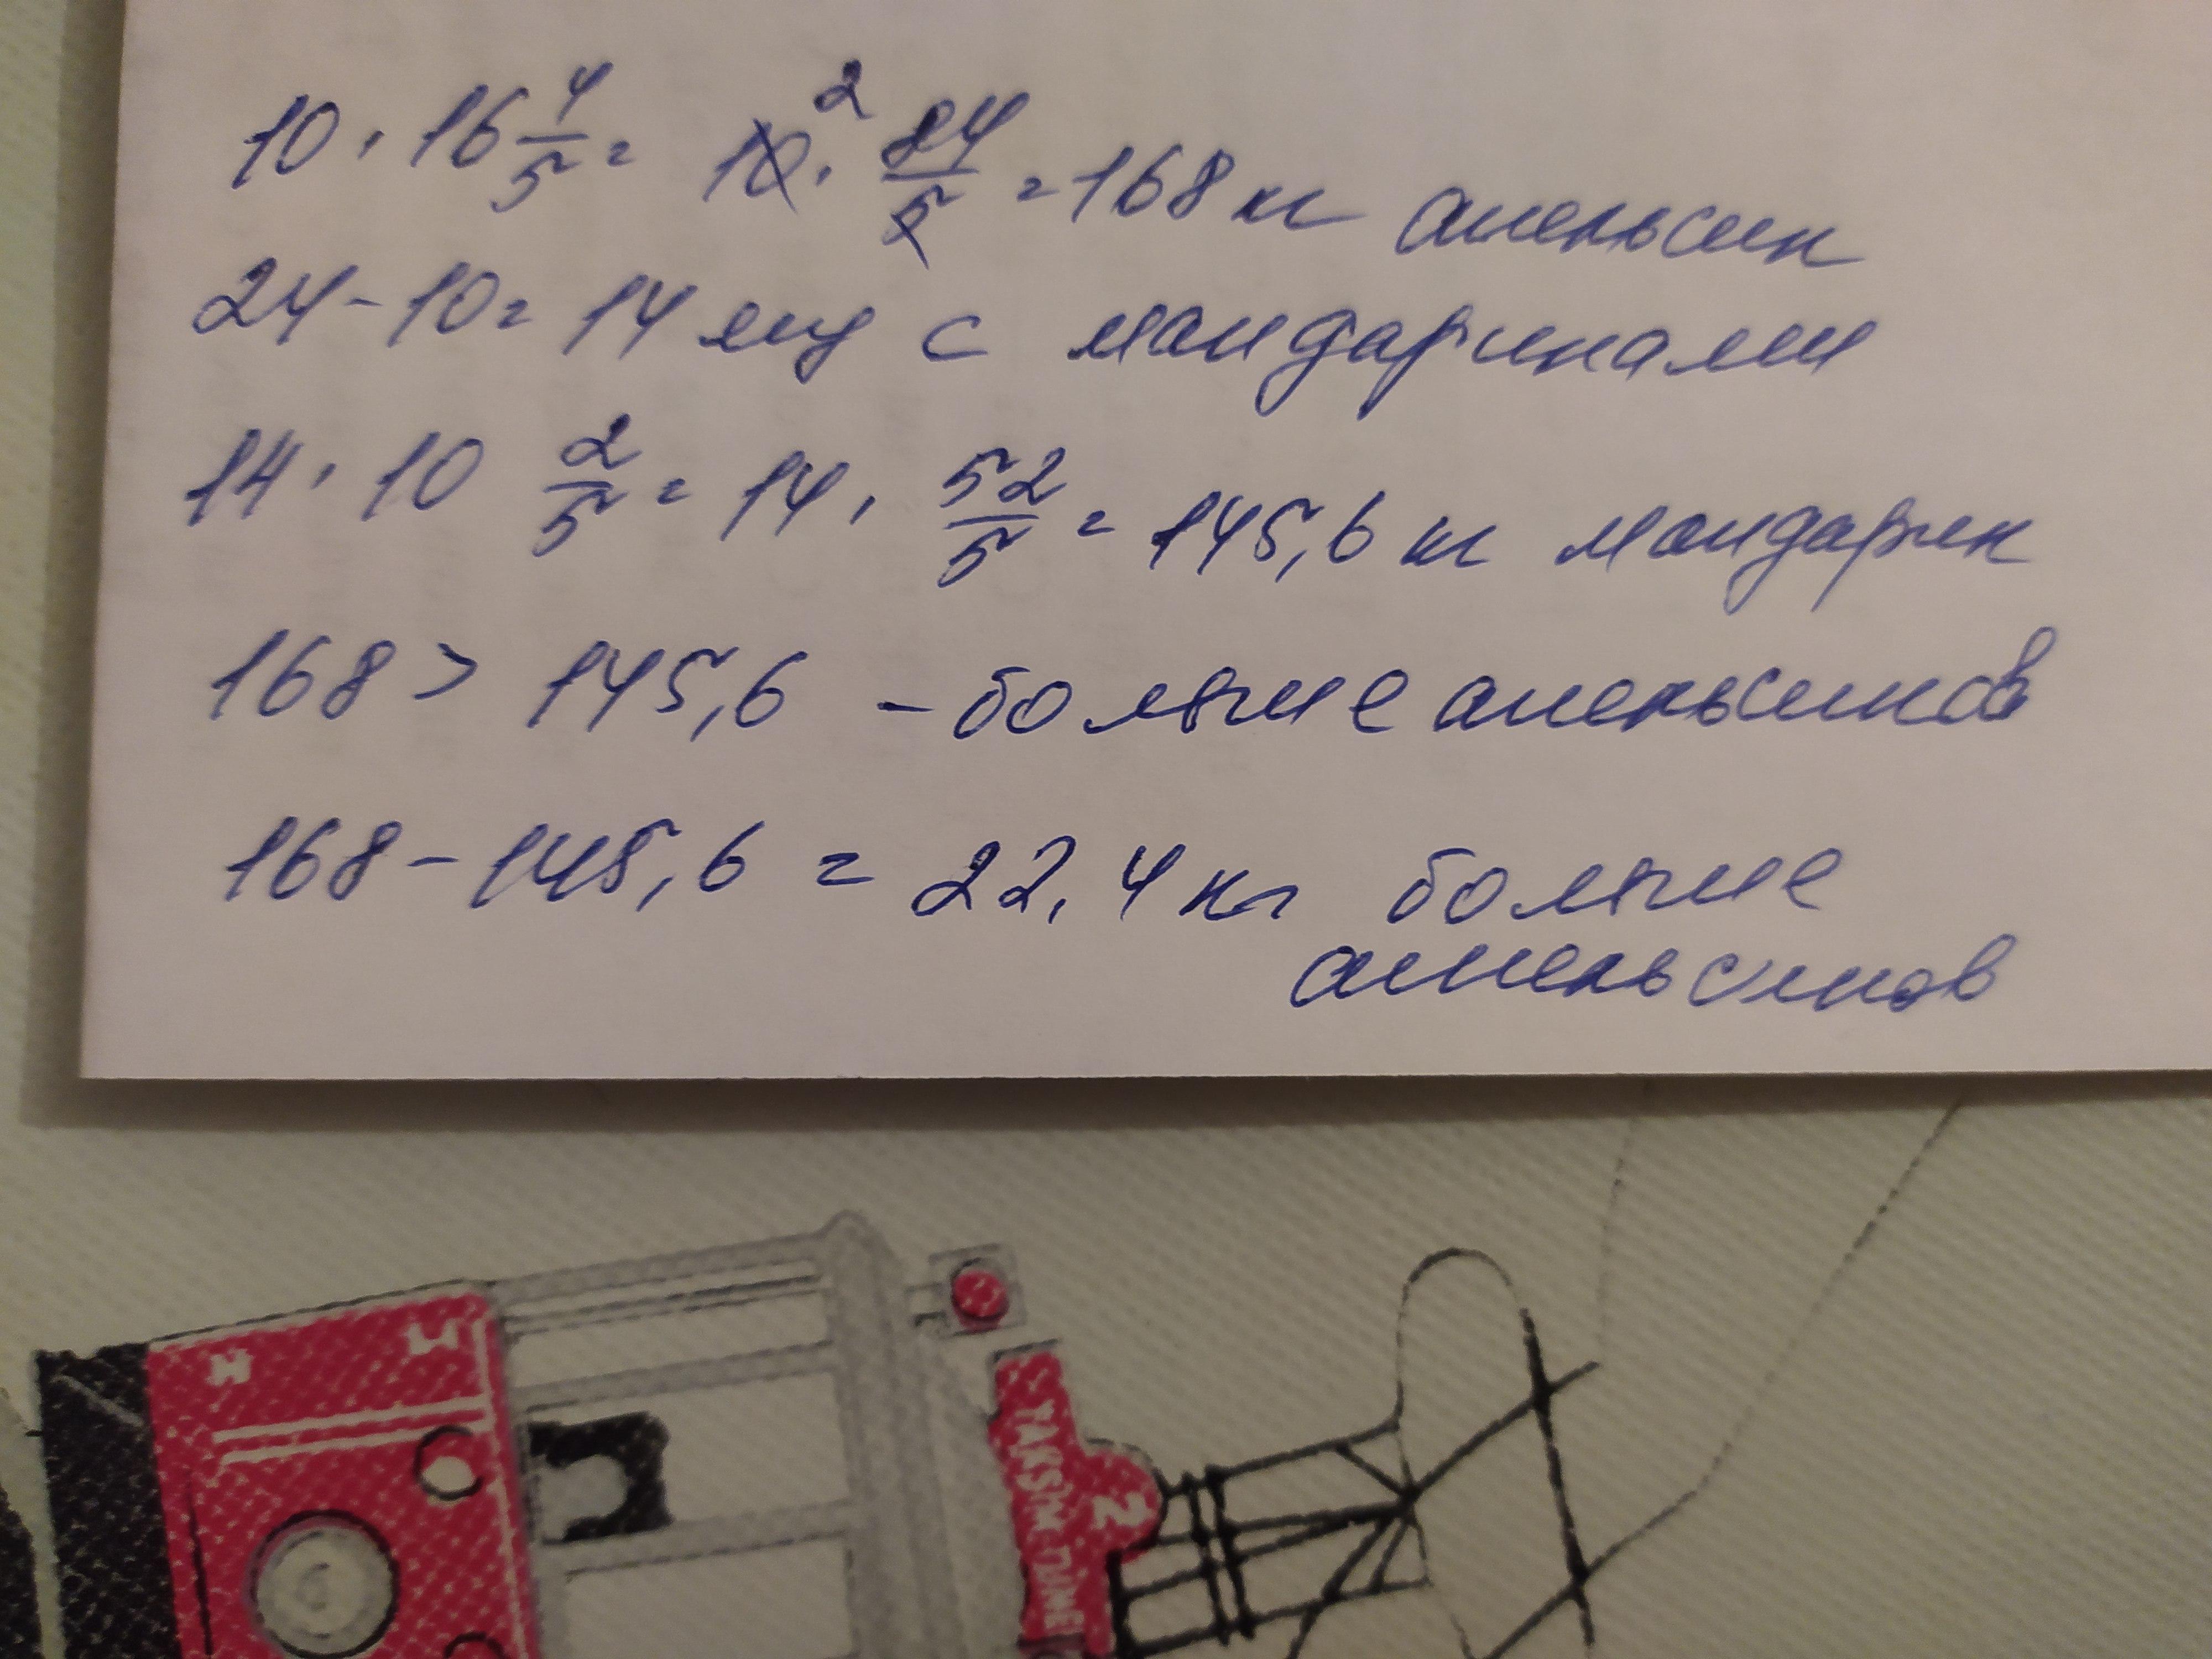 10 · 16 4/5 = 10 · 2 84/5 = 168 кг апельсин
24 - 10 = 14 ящ с мандаринами
14 · 10 2/5 = 14 · 52/5 = 145,6 кг мандарин
168 > 145,6 - больше апельсинов
168 - 145,6 = 22,4 кг больше
апельсинов
TAKSIM TÜNEL
2